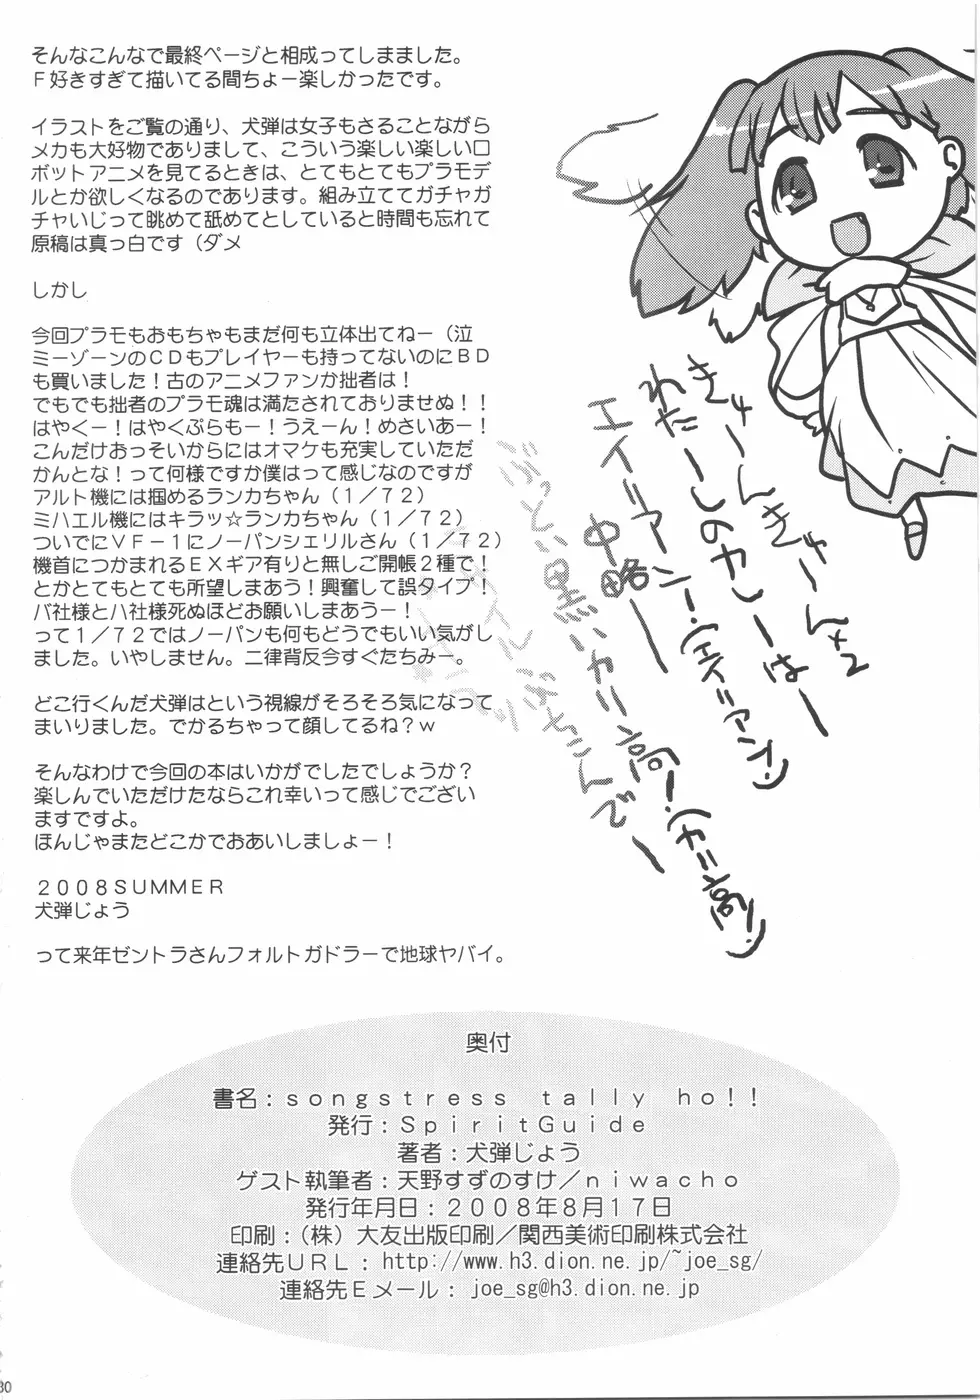 そんなこんなで最終ページと相成ってしまました。
Ｆ好きすぎて描いてる間ちょー楽しかったです。
イラストをご覧の通り、犬弾は女子もさることながら
メカも大好物でありまして、こういう楽しい楽しいロ
ボットアニメを見てるときは、とてもとてもプラモデ
ルとか欲しくなるのであります。組み立ててガチャガ
チャいじって眺めて舐めてとしていると時間も忘れて
原稿は真っ白です（ダメ
しかし
今回プラモもおもちゃもまだ何も立体出てねー（泣
ミーゾーンのＣＤもプレイヤーも持ってないのにＢＤ
も買いました！古のアニメファンか拙者は！
でもでも拙者のプラモ魂は満たされておりませぬ！！
はやくー！はやくぷらもー！うえーん！めさいあー！
こんだけおっそいからにはオマケも充実していただ
かんとな！って何様ですか僕はって感じなのですが
アルト機には掴めるランカちゃん（１／７２）
ミハエル機にはキラッ☆ランカちゃん（１／７２）
ついでにＶＦ−１にノーパンシェリルさん（１／７２）
機首につかまれるＥＸギア有りと無しご開帳２種で！
とかとてもとても所望しまあう！興奮して誤タイプ！
バ社様とハ社様死ぬほどお願いしまあうー！
って１／７２ではノーパンも何もどうでもいい気がし
ました。いやしません。二律背反今すぐたちみー。
どこ行くんだ犬弾はという視線がそろそろ気になって
まいりました。でかるちゃって顔してるね？ｗ
そんなわけで今回の本はいかがでしたでしょうか？
楽しんでいただけたならこれ幸いって感じでござい
ますですよ。
ほんじゃまたどこかでおあいしましょー！
２００８ＳＵＭＭＥＲ
犬弾じょう
って来年ゼントラさんフォルトガドラーで地球ヤバイ。
きゅーんきゅーん×２
わたーしのカレーはー
エイリアン！（エイリアン）
中略ー
ぶっとい黒いカリ高！（カリ高）
ぶちこんでー
奥付
書名：ｓｏｎｇｓｔｒｅｓｓ　ｔａｌｌｙ　ｈｏ！！
発行：ＳｐｉｒｉｔＧｕｉｄｅ
著者：犬弾じょう
ゲスト執筆者：天野すずのすけ／ｎｉｗａｃｈｏ
発行年月日：２００８年８月１７日
印刷：（株）大友出版印刷／関西美術印刷株式会社
連絡先ＵＲＬ：http://www.h3.dion.ne.jp/~joe_sg/
連絡先Ｅメール：joe_sg@h3.dion.ne.jp
30